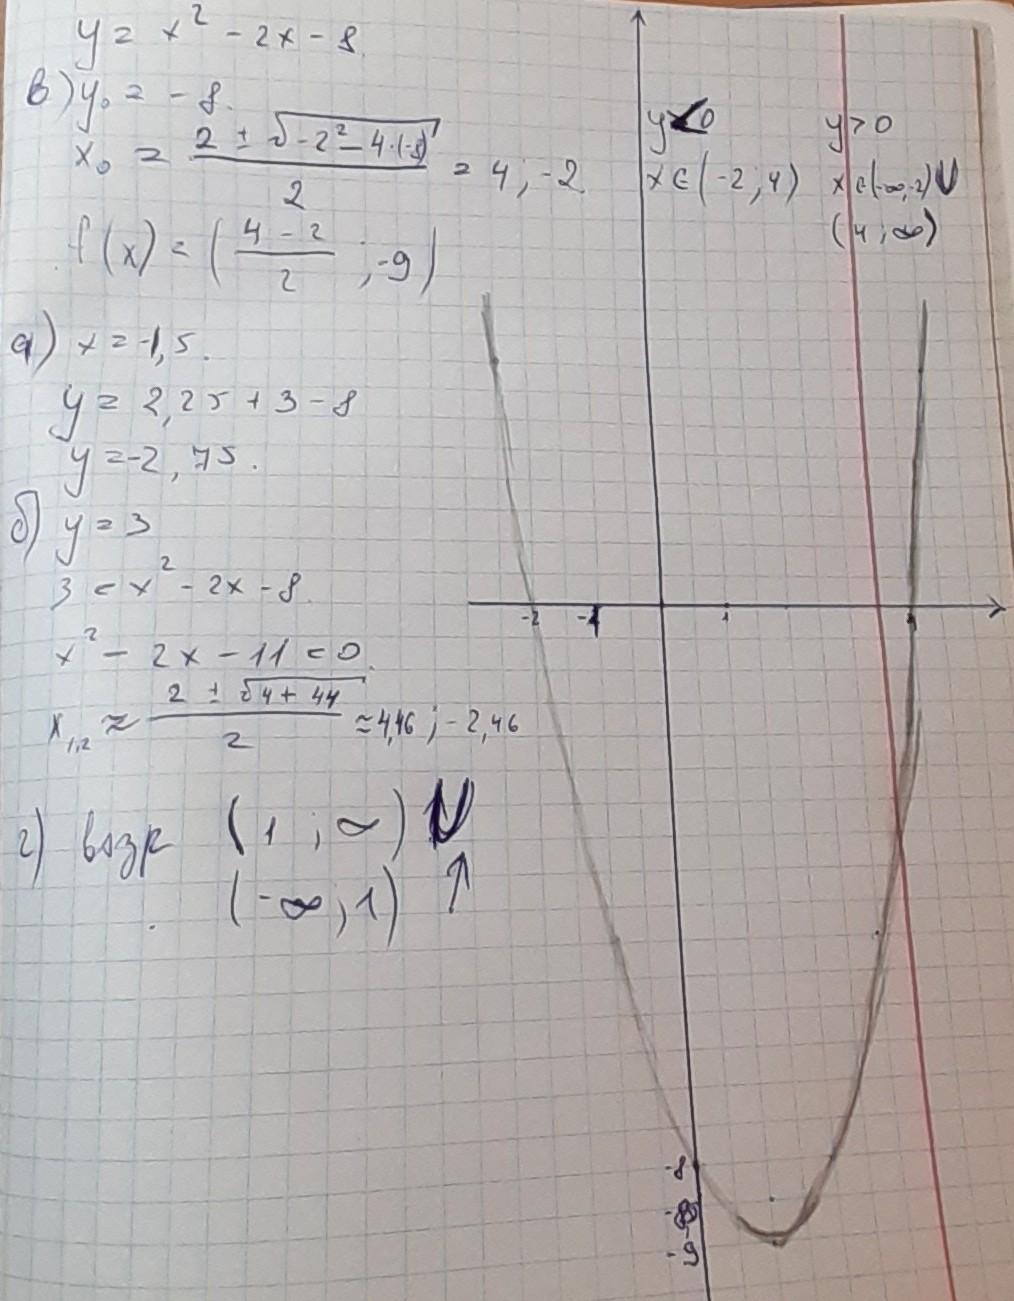 y = x² - 2x - 8.
в) y₀ = - 8.
x₀ = (2 ± √(-2² - 4·(-8)))/2 = 4 ; -2.
f(x) = ((4 - 2)/2 ; -9)
а) x = -1,5.
y = 2,25 + 3 - 8
y = -2,75.
б) y = 3
3 = x² - 2x - 8.
x² - 2x - 11 = 0.
x₁,₂ ≈ (2 ± √(4 + 44))/2 ≈ 4,46 ; -2,46
г) возр (1 ; ∞) U
(-∞ ; 1) ↑
y < 0
x ∈ (-2 ; 4)
y > 0
x ∈ (-∞, -2) U
(4 ; ∞)
-2 -1 1 4
-8
-9